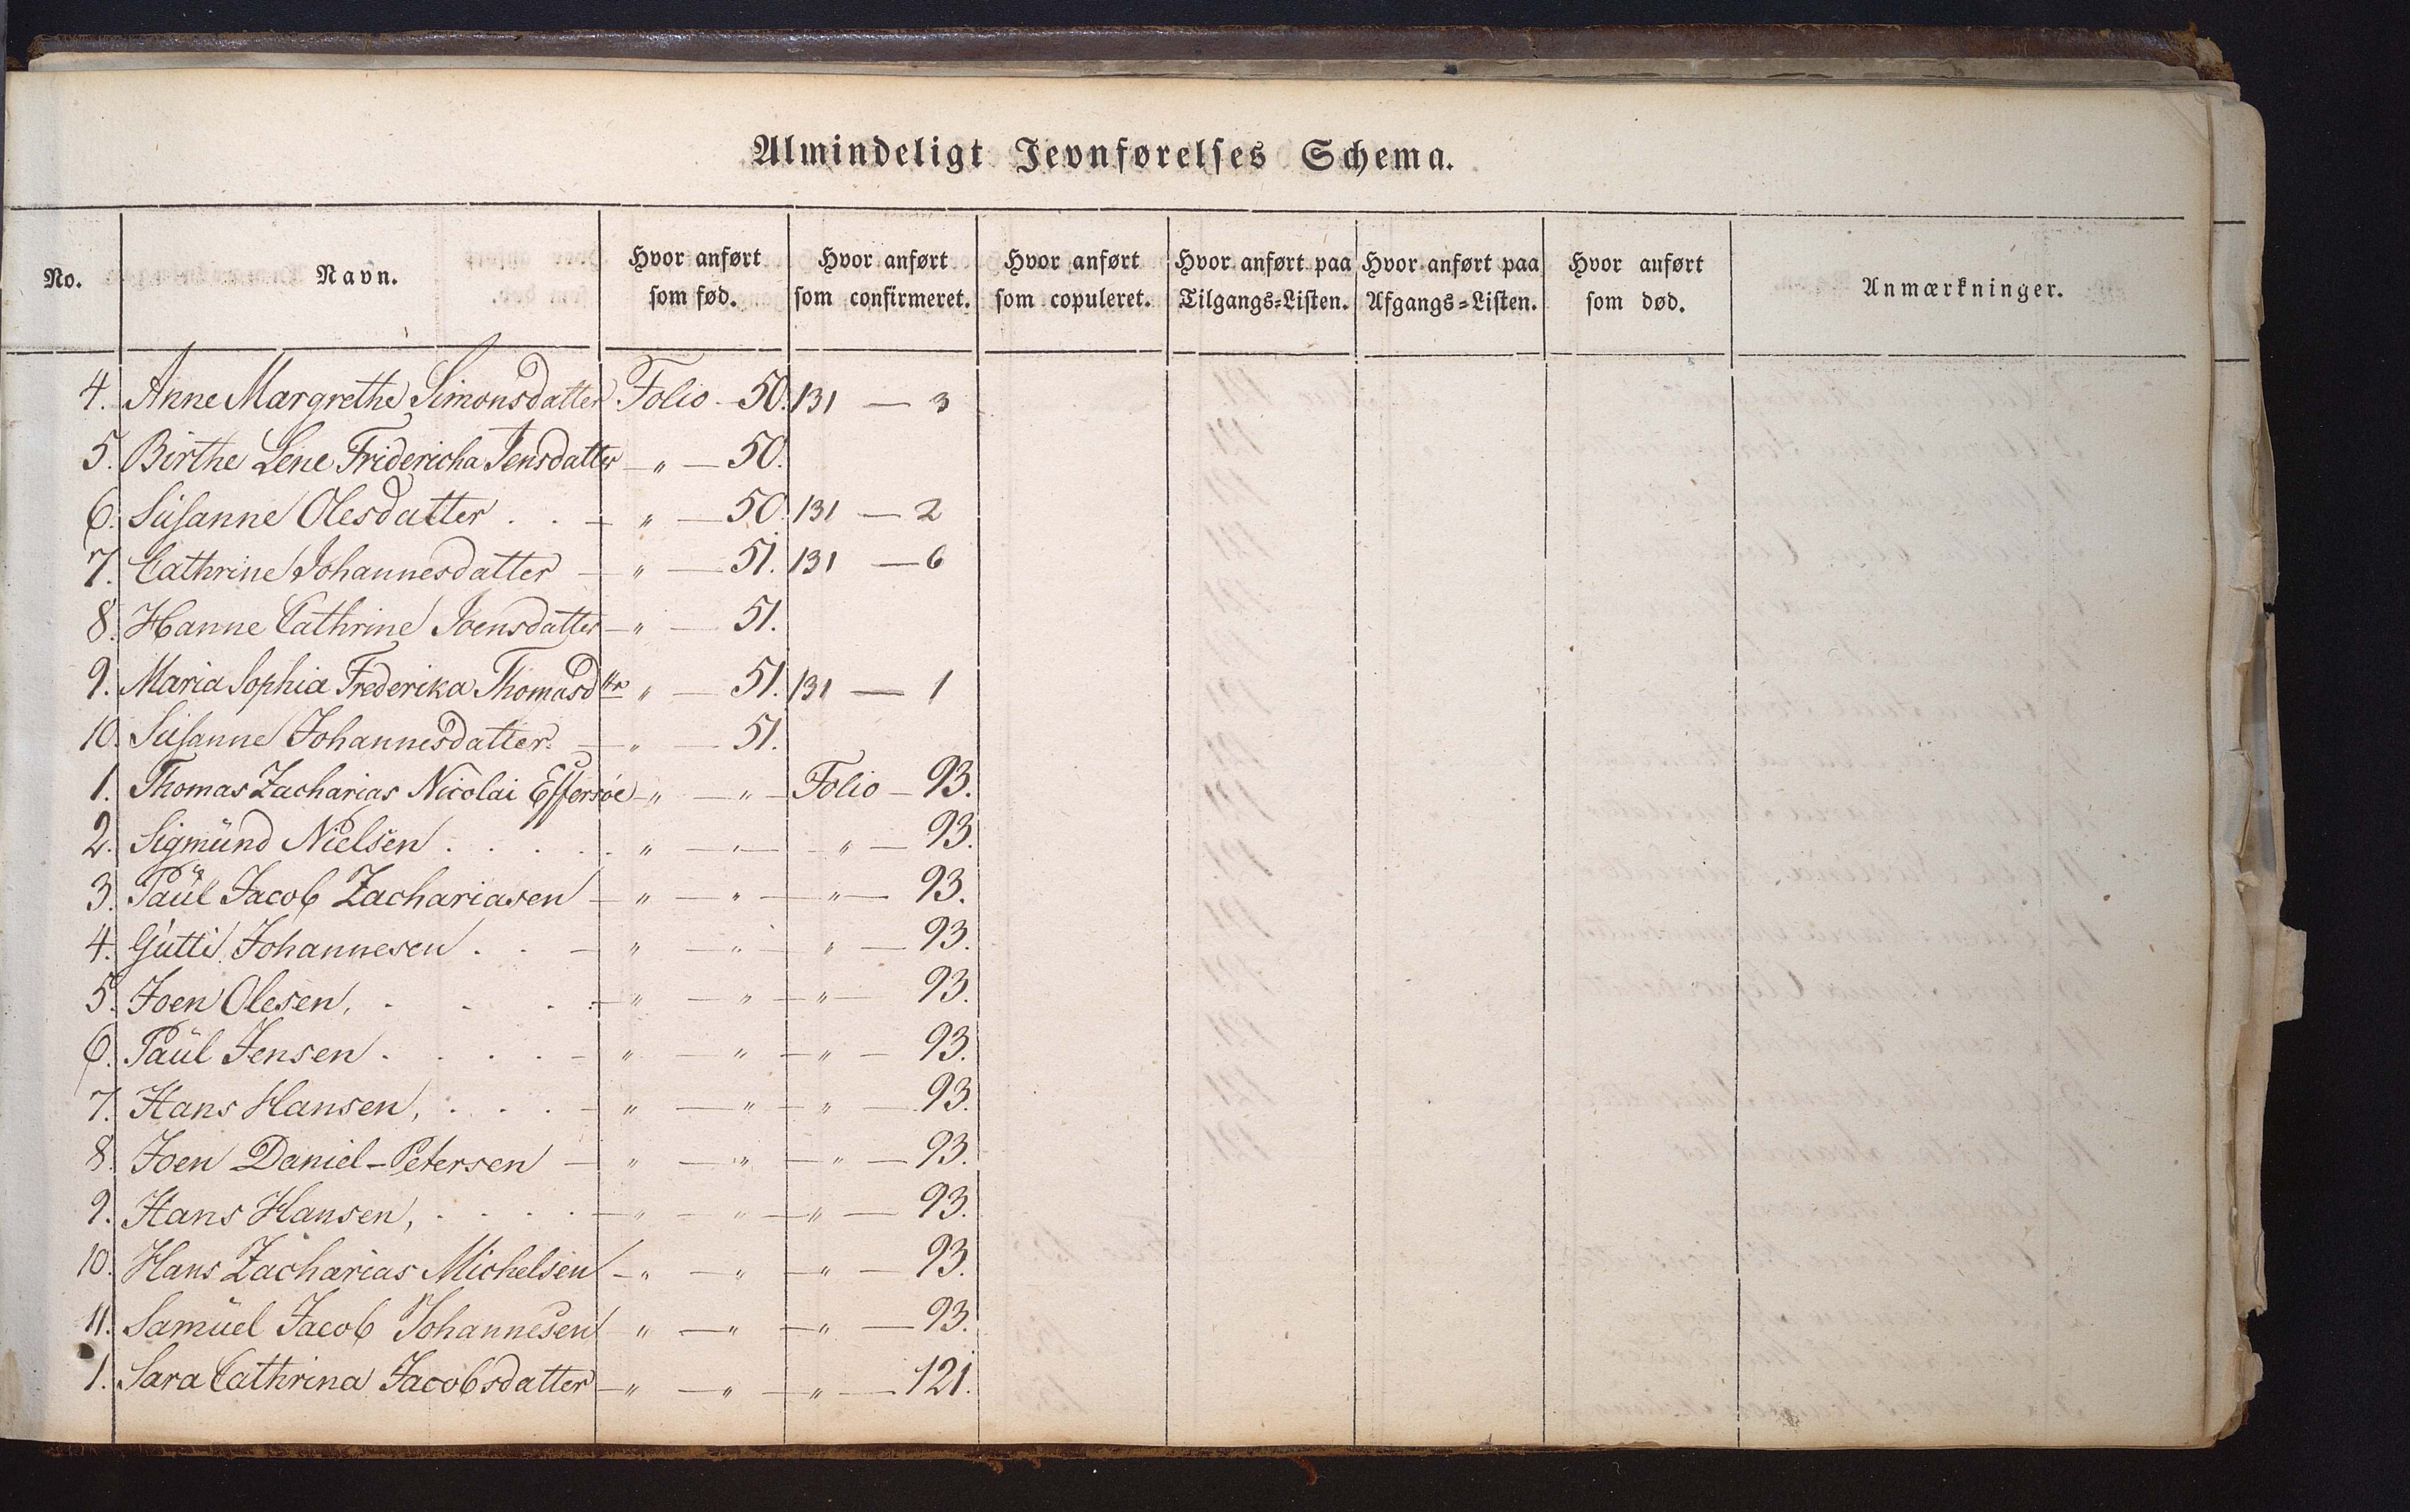 Almindeligt Jevnførelses Schema.
No. Navn. Hvor anført som fød. Hvor anført som confirmeret. Hvor anført som copuleret. Hvor anført paa Tilgangs=Listen. Hvor anført paa Afgangs=Listen. Hvor anført som død. Anmærkninger.
4. Anne Margrethe Simonsdatter Folio - 50. 131 — 3
5. Birthe Lene Fridericha Jensdatter — „ — 50.
6. Susanne Olesdatter . . — „ — 50. 131 — 2
7. Cathrine Johannesdatter — „ — 51. 131 — 6
8. Hanne Cathrine Joensdatter — „ — 51.
9. Maria Sophia Frederika Thomasdttr „ — 51. 131 — 1
10. Susanne Johannesdatter. — „ — 51.
1. Thomas Zacharias Nicolai Effersöe — „ — „ — Folio — 93.
2. Sigmünd Nielsen . . . . . „ — „ — „ — 93.
3. Paül Jacob Zachariasen — „ — „ — „ — 93.
4. Gutti Johannesen . . — „ — „ — „ — 93.
5. Joen Olesen, . . . — „ — „ — „ — 93.
6. Paül Jensen . . . . — „ — „ — „ — 93.
7. Hans Hansen, . . . — „ — „ — „ — 93.
8. Joen Daniel-Petersen — „ — „ — „ — 93.
9. Hans Hansen, . . . . — „ — „ — „ — 93.
10. Hans Zacharias Michelsen — „ — „ — „ — 93.
11. Samüel Jacob Johannesen „ — „ — „ — 93.
1. Sara Cathrina Jacobsdatter — „ — „ — „ — 121.